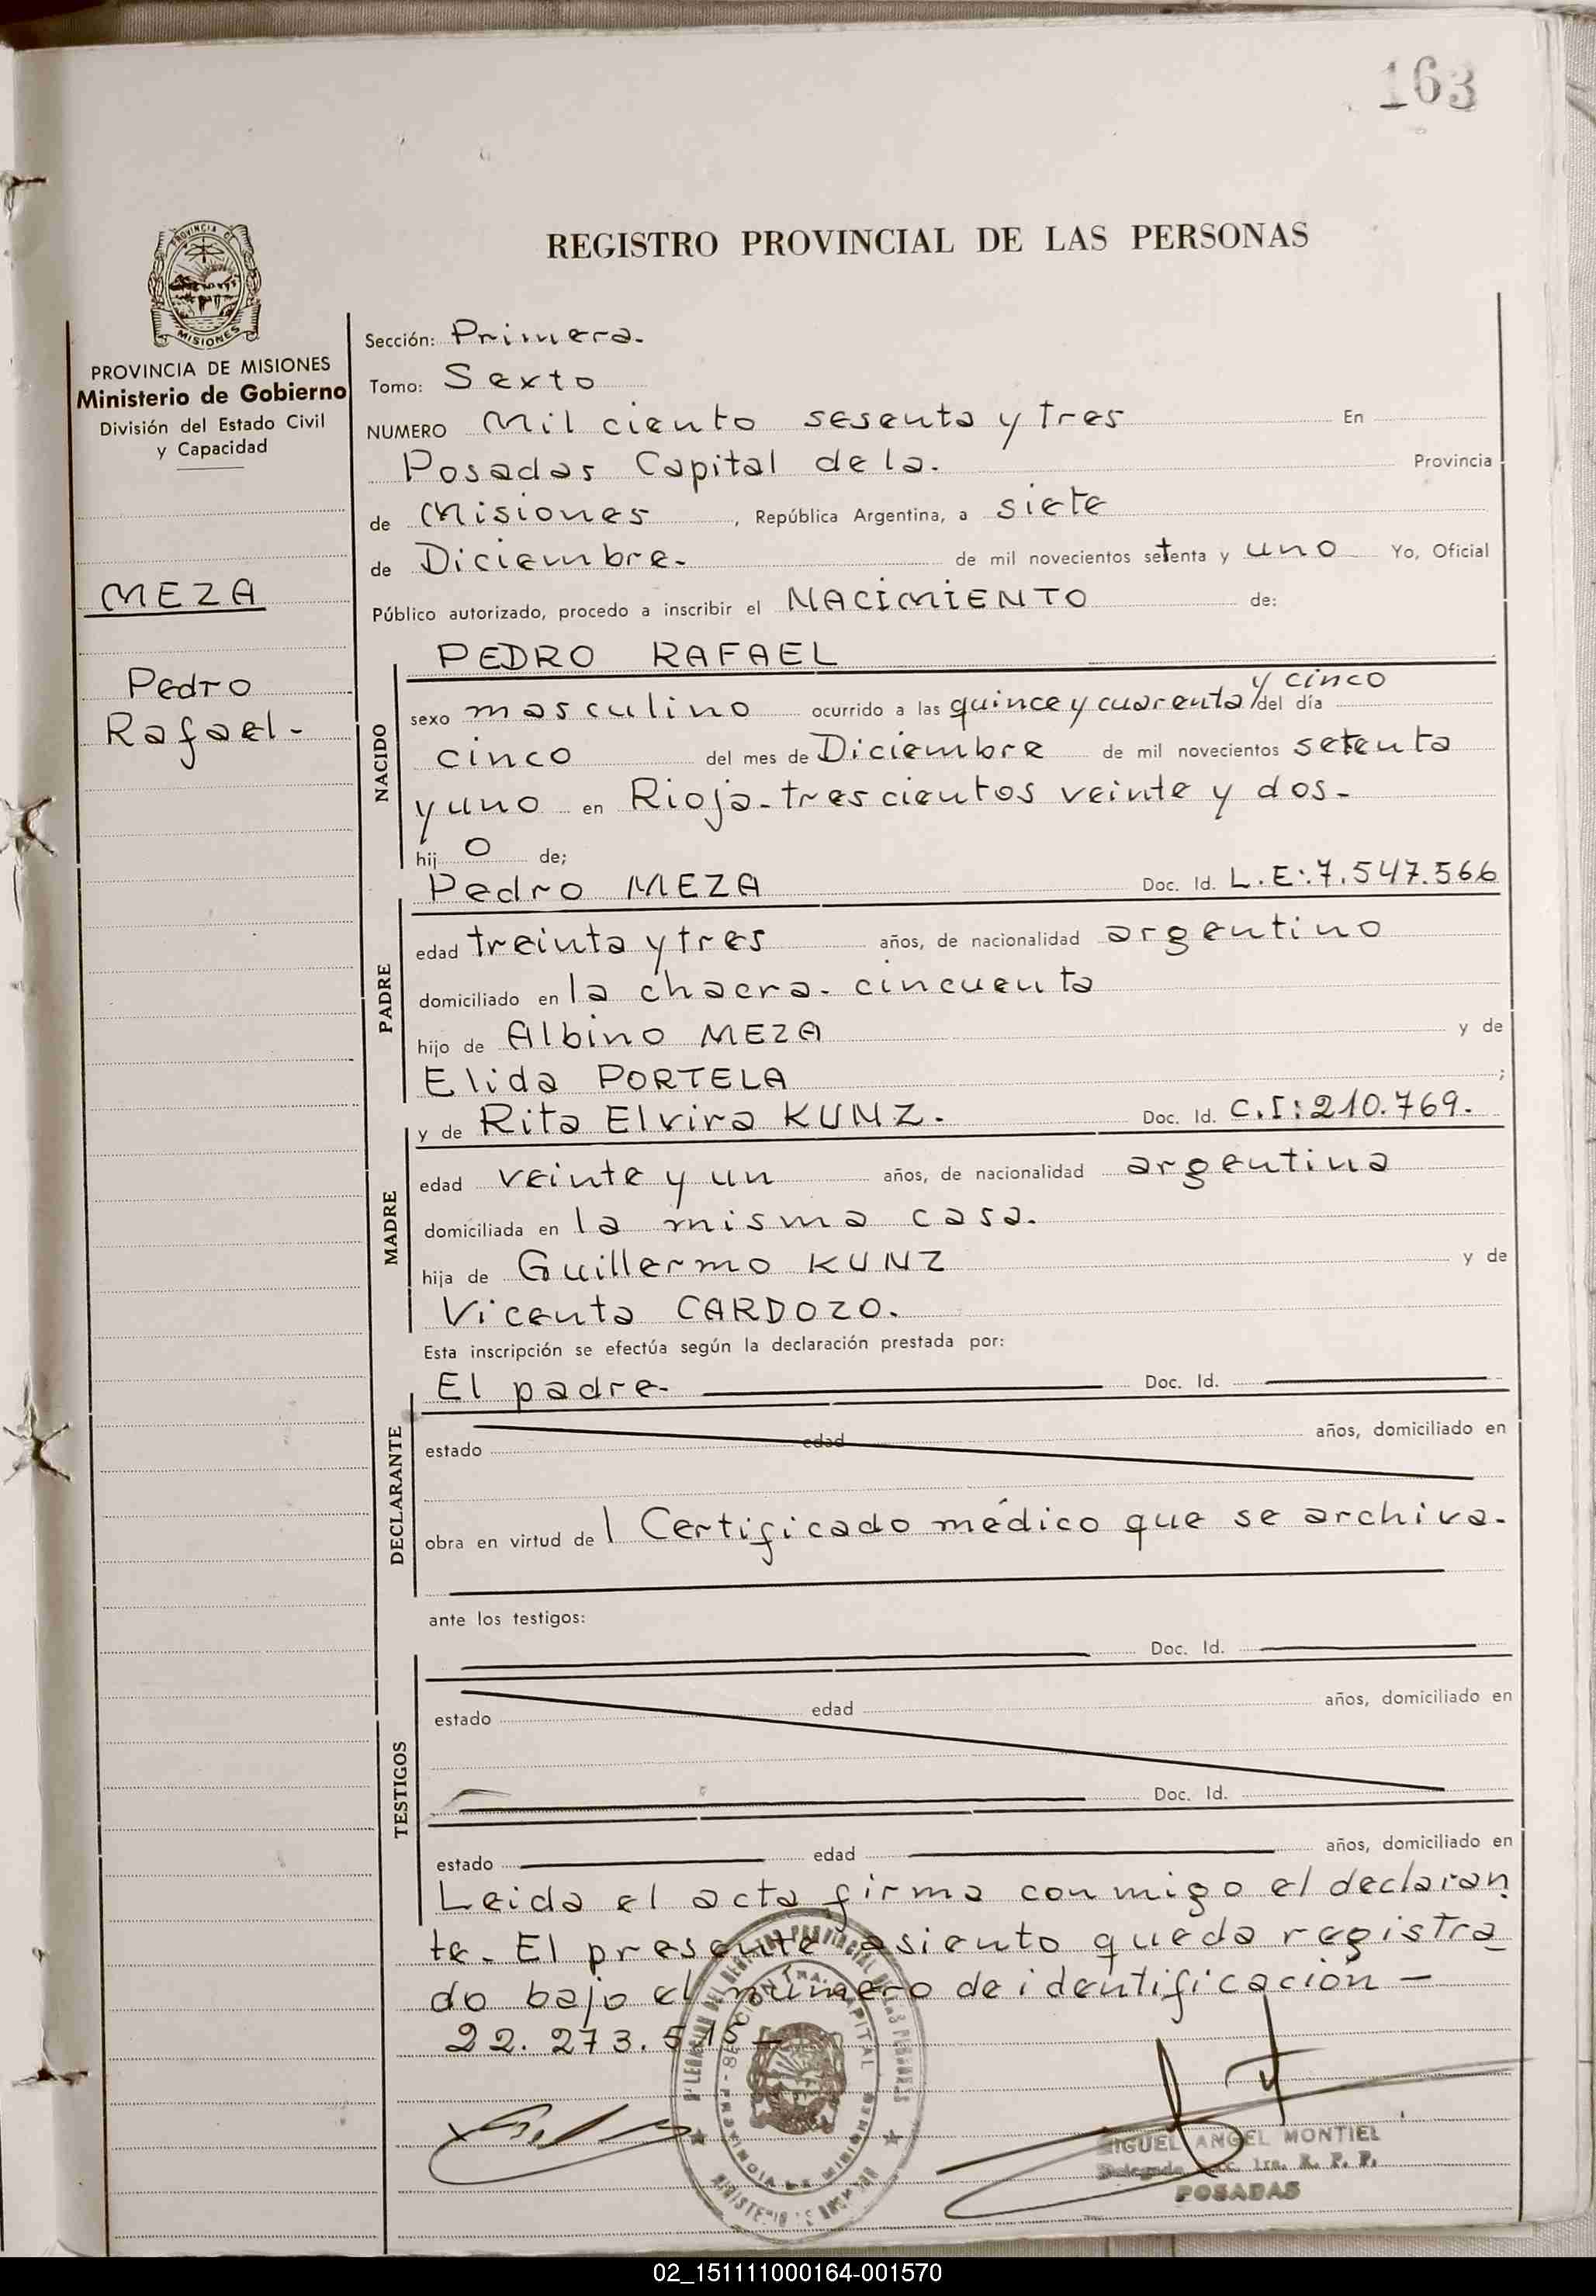 163
REGISTRO PROVINCIAL DE LAS PERSONAS
PROVINCIA DE MISIONES
Ministerio de Gobierno
División del Estado Civil
y Capacidad
MEZA
Pedro
Rafael-
Sección: Primera.
Tomo: Sexto
NUMERO Mil ciento sesenta y tres En
Posadas Capital de la. Provincia
de Misiones, República Argentina, a siete
de Diciembre. de mil novecientos setenta y uno Yo, Oficial
Público autorizado, procedo a inscribir el NACIMIENTO de:
NACIDO
PEDRO RAFAEL
y cinco
sexo masculino ocurrido a las quince y cuarenta / del día
cinco del mes de Diciembre de mil novecientos setenta
y uno en Rioja-trescientos veinte y dos-
hij o de;
PADRE
Pedro MEZA Doc. Id. L.E:.7.547.566
edad treinta y tres años, de nacionalidad argentino
domiciliado en la chacra- cincuenta
hijo de Albino MEZA y de
Elida PORTELA ;
MADRE
y de Rita Elvira KUNZ. Doc. Id. C.I:210.769.
edad veinte y un años, de nacionalidad argentina
domiciliada en la misma casa.
hija de Guillermo KUNZ y de
Vicenta CARDOZO.
Esta inscripción se efectúa según la declaración prestada por:
DECLARANTE
El padre- Doc. Id.
estado edad años, domiciliado en
obra en virtud de l Certificado médico que se archiva-
ante los testigos:
TESTIGOS
Doc. Id.
estado edad años, domiciliado en
Doc. Id.
estado edad años, domiciliado en
Leida el acta firma conmigo el declaran
te- El presente asiento queda registra
do bajo el número de identificación -
22.273.515-
MIGUEL ANGEL MONTIEL
Delegado Sec. 1ra. R. P. P.
POSADAS
02_151111000164-001570